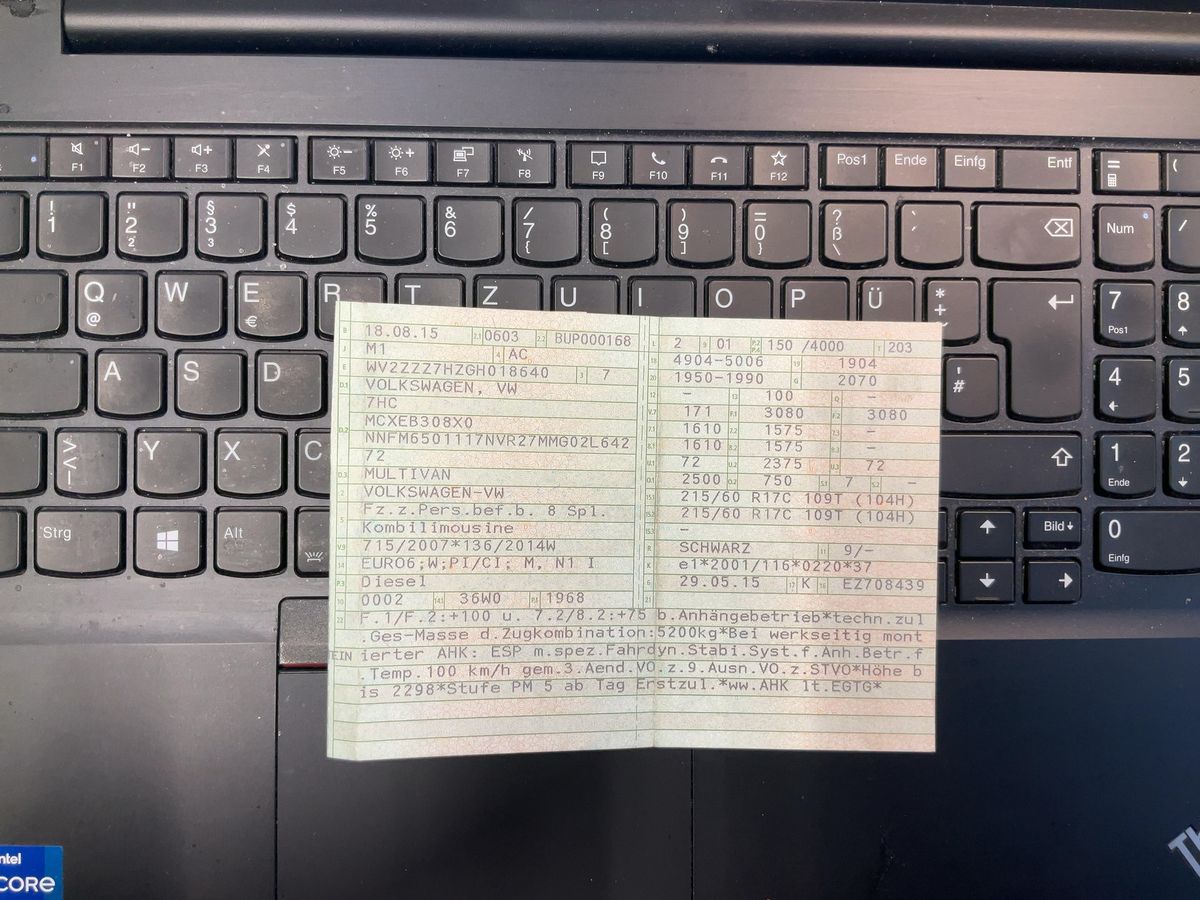 F1 F2 F3 F4 F5 F6 F7 F8 F9 F10 F11 F12 Pos1 Ende Einfg Entf
! 1
" 2 2
§ 3 3
$ 4
% 5
& 6
/ 7 {
( 8 [
) 9 ]
= 0 }
? ß \
Num
/
Q @ W E € R T Z U I O P Ü * + ~ 7 Pos1 8
A S D ' # 4 5
> < | Y X C 1 Ende 2
Strg Alt Bild 0 Einfg
B 18.08.15 2.1 0603 2.2 BUP000168
J M1 4 AC
E WV2ZZZ7HZGH018640 3 7
D.1 VOLKSWAGEN, VW
7HC
D.2 MCXEB308X0
NNFM6501117NVR27MMG02L642
72
D.3 MULTIVAN
2 VOLKSWAGEN-VW
5 Fz.z.Pers.bef.b. 8 Spl.
Kombilimousine
V.9 715/2007*136/2014W
14 EURO6;W;PI/CI; M, N1 I
P.3 Diesel
10 0002 14.1 36W0 P.1 1968
L 2 9 01 P.2 P.4 150 /4000 T 203
18 4904-5006 19 1904
20 1950-1990 G 2070
12 – 13 100 Q –
V.7 171 F.1 3080 F.2 3080
7.1 1610 7.2 1575 7.3 –
8.1 1610 8.2 1575 8.3 –
U.1 72 U.2 2375 U.3 72
O.1 2500 O.2 750 S.1 7 S.2 –
15.1 215/60 R17C 109T (104H)
15.2 215/60 R17C 109T (104H)
15.3 –
R SCHWARZ 11 9/–
K e1*2001/116*0220*37
6 29.05.15 17 K 16 EZ708439
21
22 F.1/F.2:+100 u. 7.2/8.2:+75 b.Anhängebetrieb*techn.zul
.Ges-Masse d.Zugkombination:5200kg*Bei werkseitig mont
EIN ierter AHK: ESP m.spez.Fahrdyn.Stabi.Syst.f.Anh.Betr.f
.Temp.100 km/h gem.3.Aend.VO.z.9.Ausn.VO.z.STVO*Höhe b
is 2298*Stufe PM 5 ab Tag Erstzul.*ww.AHK lt.EGTG*
intel
CORE
Th